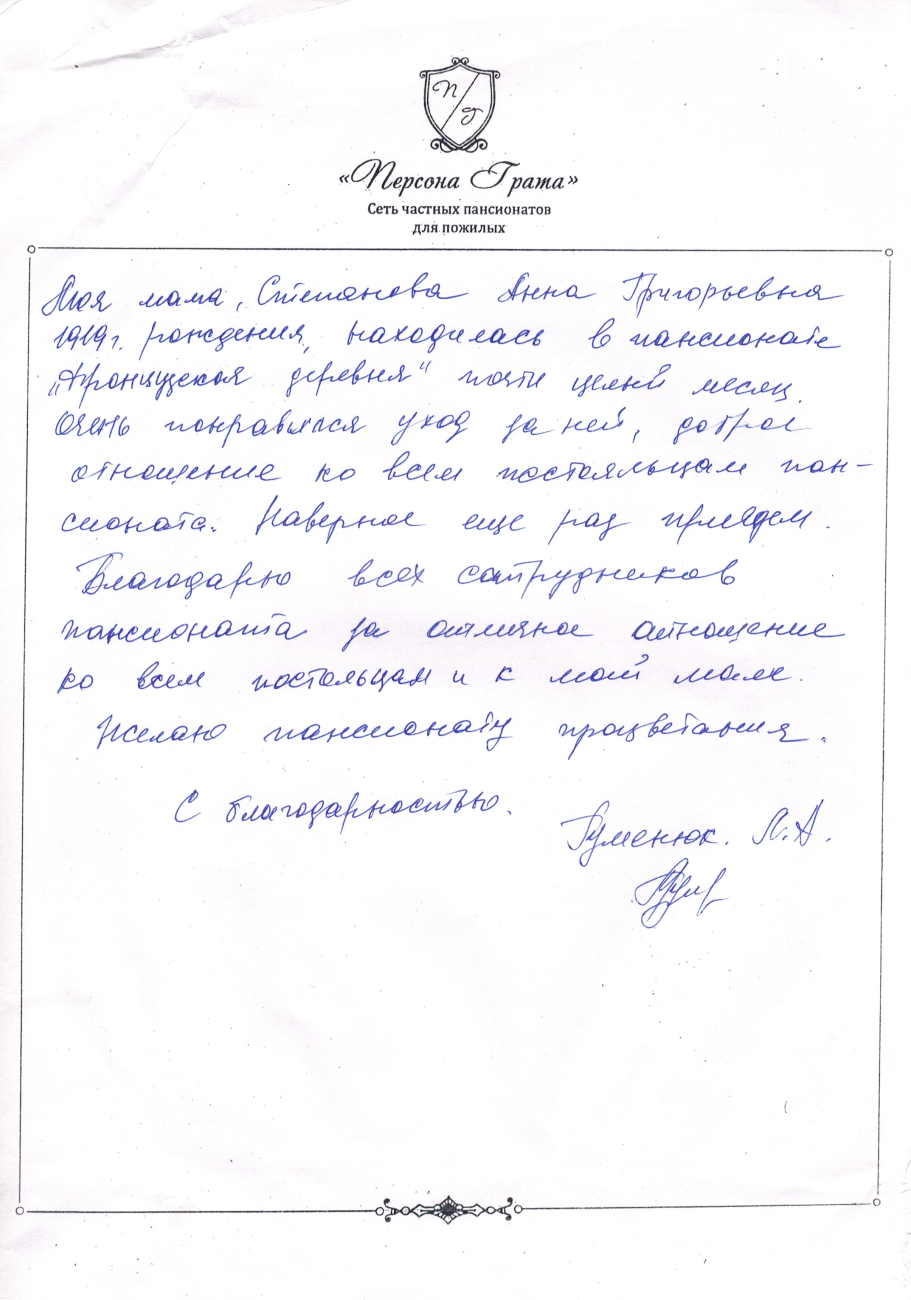 П/Г
«Персона Грата»
Сеть частных пансионатов
для пожилых
Моя мама, Степанова Анна Григорьевна
1919г. рождения, находилась в пансионате
„Французская деревня" почти целый месяц.
Очень понравился уход за ней, доброе
отношение ко всем постояльцам пан-
сионата. Наверное еще раз приедем.
Благодарю всех сотрудников
пансионата за отличное отношение
ко всем постояльцам и к моей маме.
Желаю пансионату процветания.
С благодарностью.
Гуменюк. Л.А.